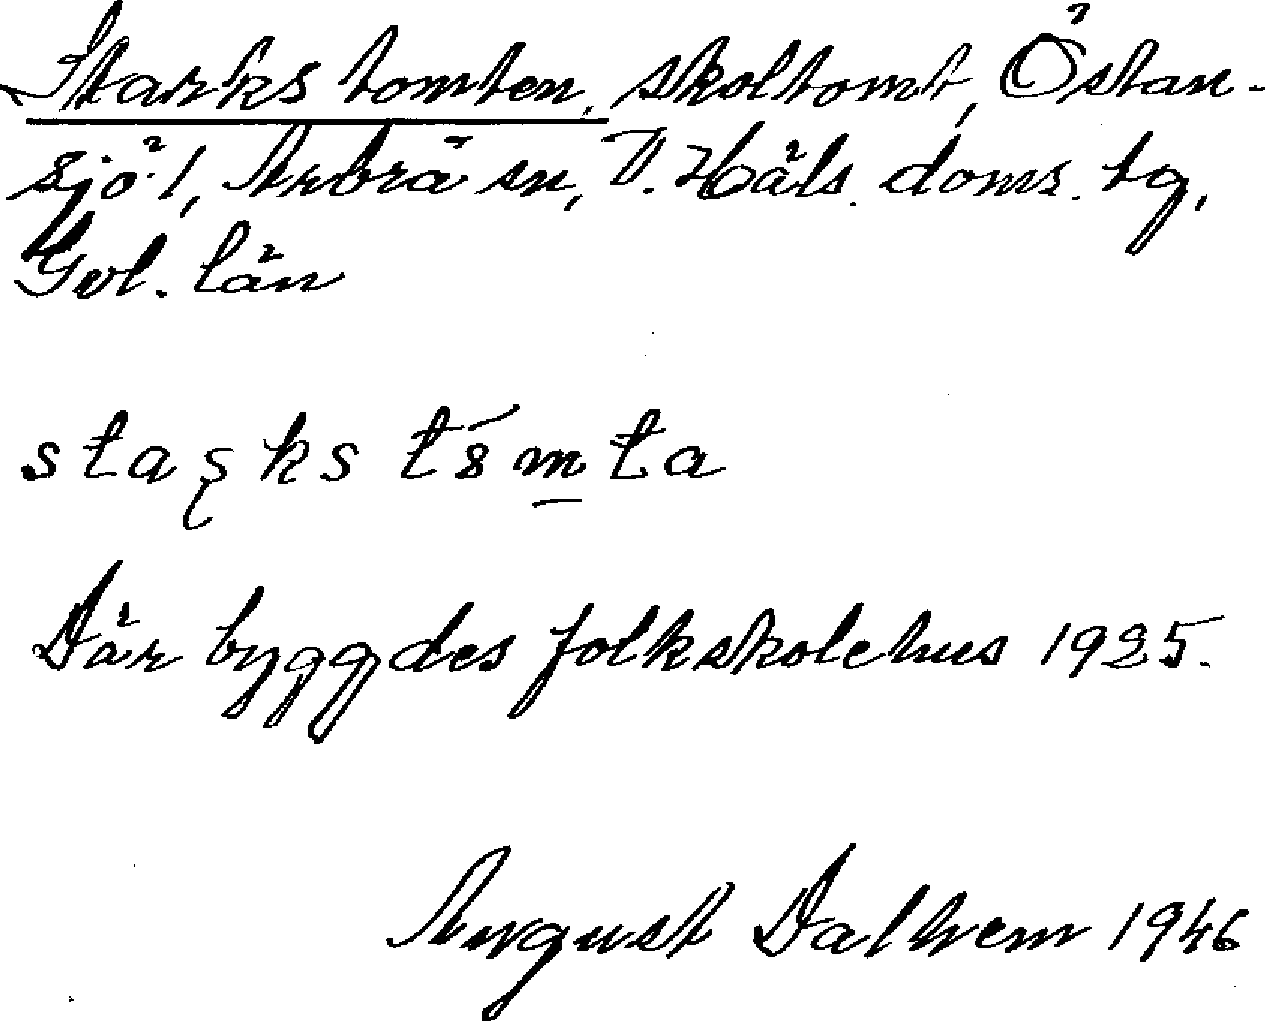 Starks tomten, skoltomt, Östan-
sjö 1, Arbrå sn, V. Häls. doms. tg,
Gvl. län
Där byggdes folkskolehus 1925.
August Dalhem 1946